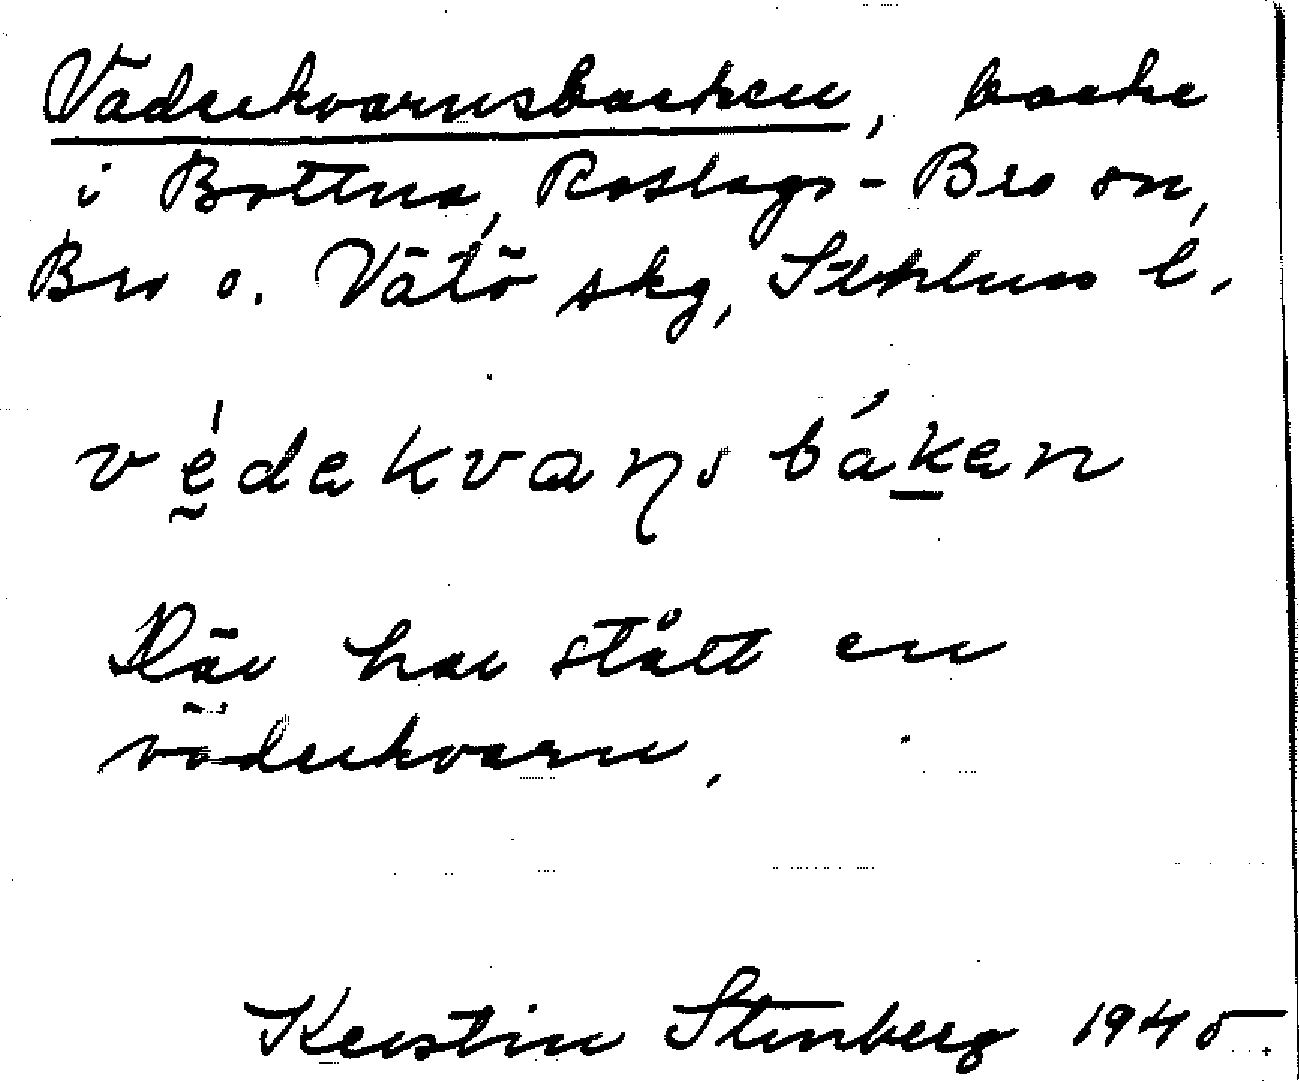 Väderkvarnsbacken, backe
i Bottna, Roslags-Bro sn,
Bro o. Vätö skg, Sthlms l.
vędekvaṇsbáken
Där har stått en
väderkvarn.
Kerstin Stenberg 1945.